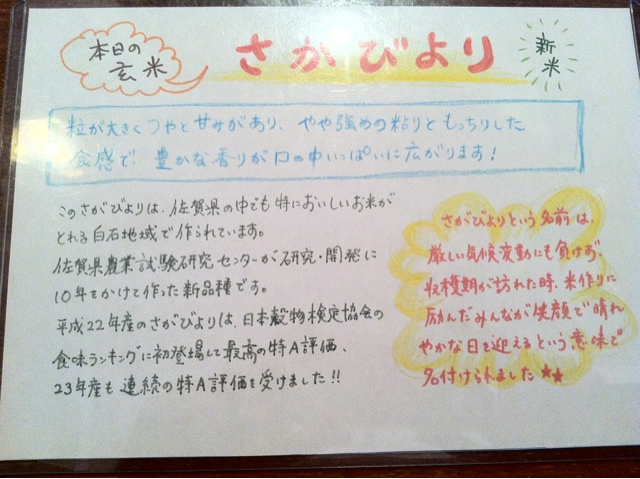 本日の
玄米
さがびより
新米
粒が大きくつやと甘みがあり、やや強めの粘りともっちりした
食感で、豊かな香りが口の中いっぱいに広がります！
このさがびよりは、佐賀県の中でも特においしいお米が
とれる白石地域で作られています。
佐賀県農業試験研究センターが研究・開発に
10年をかけて作った新品種です。
平成22年産のさがびよりは、日本穀物検定協会の
食味ランキングに初登場して最高の特A評価、
23年産も連続の特A評価を受けました!!
さがびよりという名前は、
厳しい気候変動にも負けず、
収穫期が訪れた時、米作りに
励んだみんなが笑顔で晴れ
やかな日を迎えるという意味で
名付けられました★★